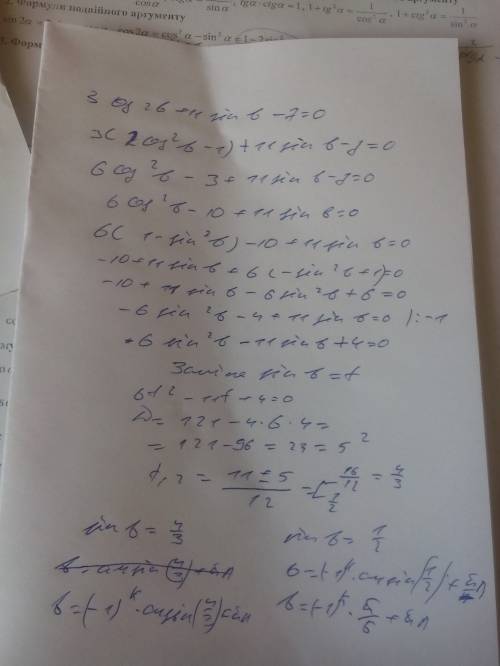 2. Формули подвійного аргументу
sin α
, tgα · ctgα = 1, 1 + tg² α = 1/cos² α, 1 + ctg² α = 1/sin² α
cos 2α = cos² α − sin² α = 1 − 2 sin²
3 cos 2b + 11 sin b − 7 = 0
3(2cos²b − 1) + 11 sin b − 7 = 0
6 cos²b − 3 + 11 sin b − 7 = 0
6 cos²b − 10 + 11 sin b = 0
6(1 − sin²b) − 10 + 11 sin b = 0
−10 + 11 sin b + 6(−sin²b + 1) = 0
−10 + 11 sin b − 6 sin²b + 6 = 0
−6 sin²b − 4 + 11 sin b = 0 /: −1
6 sin²b − 11 sin b + 4 = 0
Заміна sin b = t
6t² − 11t + 4 = 0
D = 121 − 4·6·4 =
= 121 − 96 = 25 = 5²
t₁,₂ = (11 ± 5)/12 = [ 16/12 = 4/3
1/2
sin b = 4/3 sin b = 1/2
b = arcsin(4/3) + πn b = (−1)ᵏ · arcsin(1/2) + πn
b = (−1)ᵏ · arcsin(4/3) πn b = (−1)ᵏ · π/6 + πn